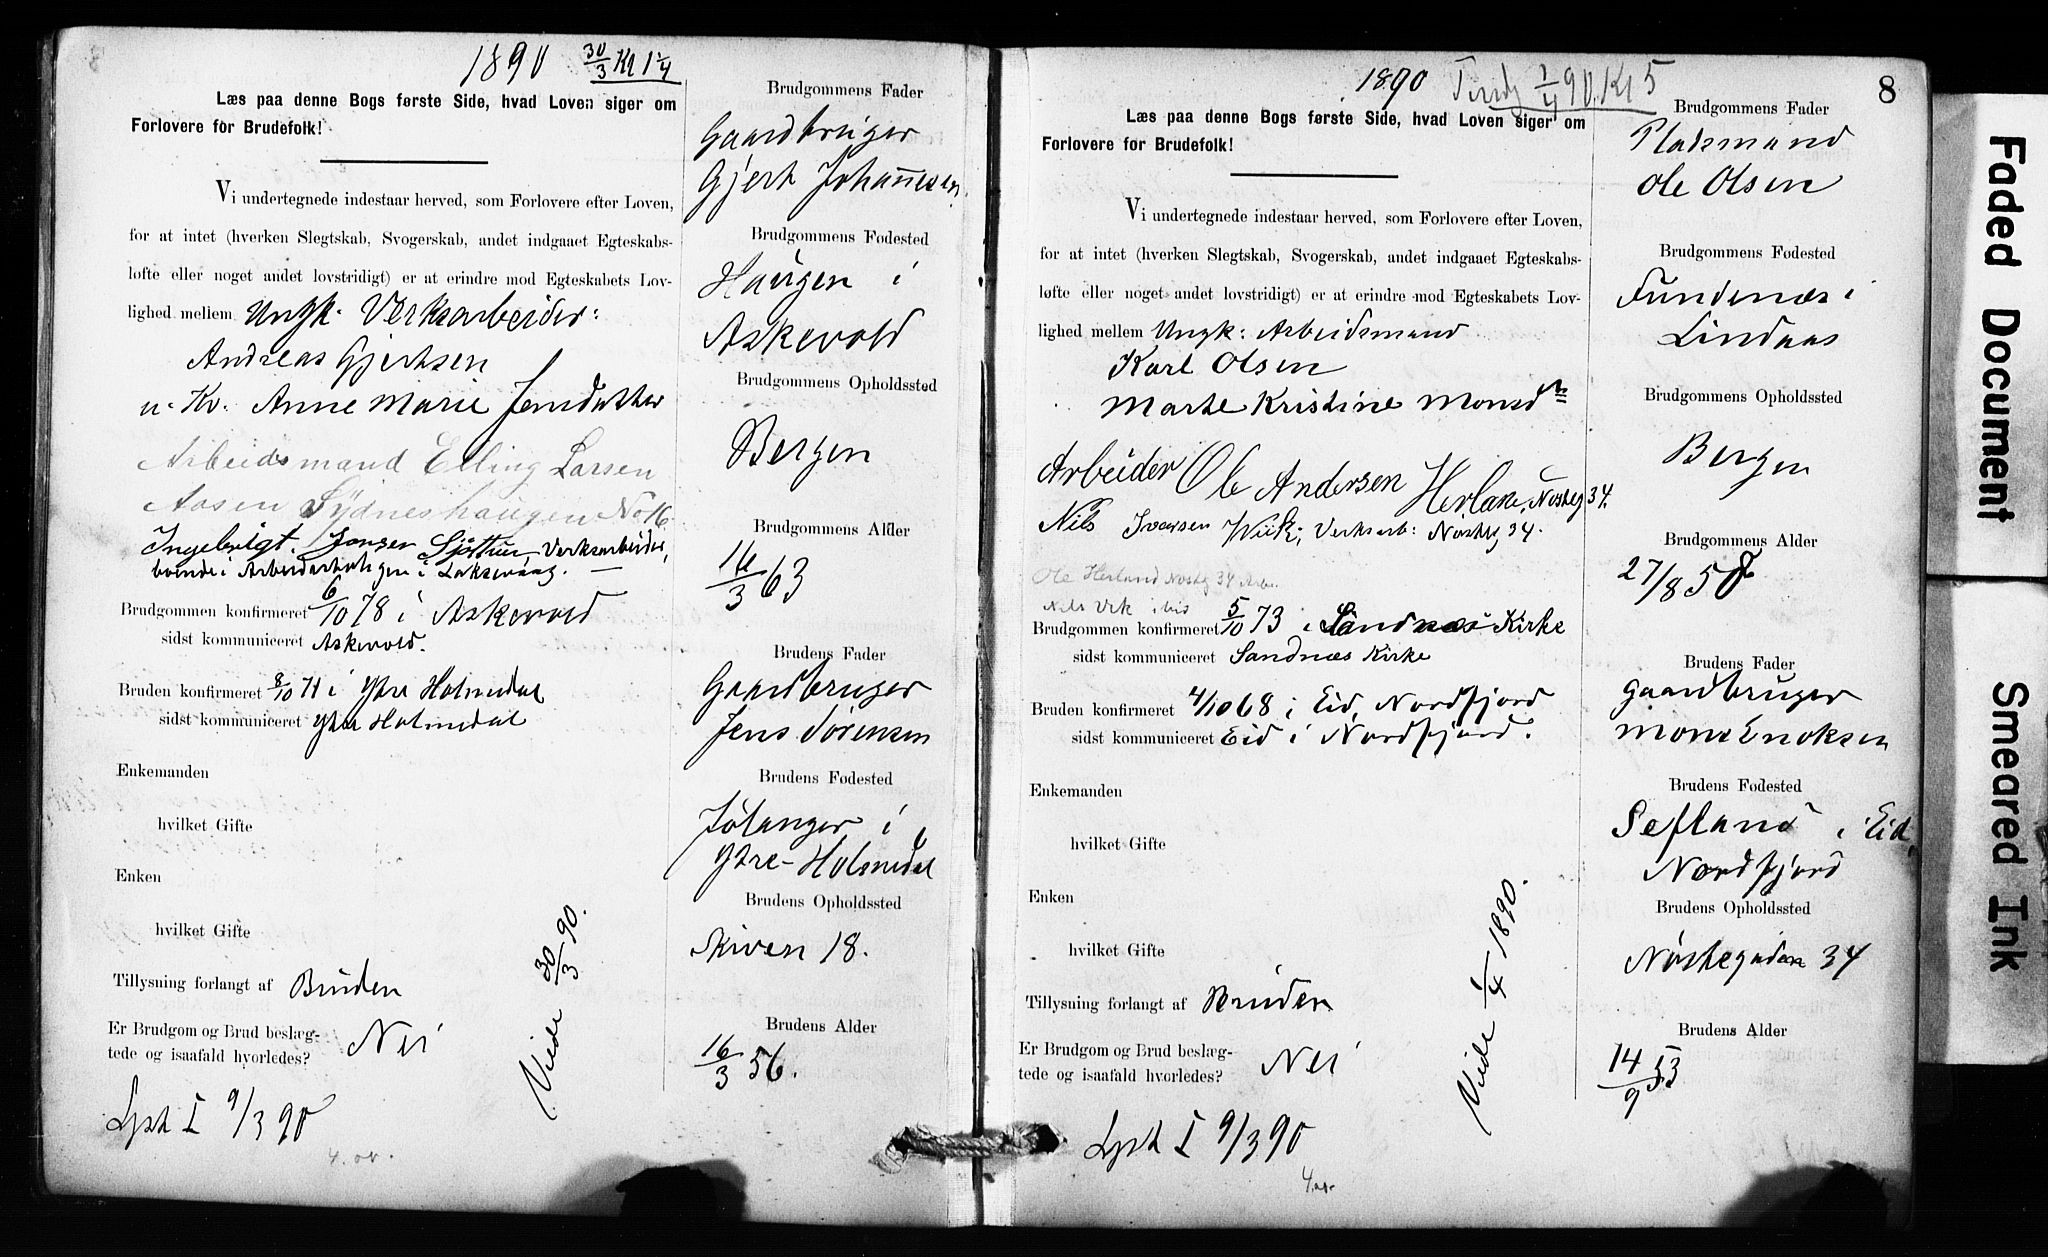 1890 30/3 Kl 1 1/4
Læs paa denne Bogs første Side, hvad Loven siger om
Forlovere for Brudefolk!
Vi undertegnede indestaar herved, som Forlovere efter Loven,
for at intet (hverken Slegtskab, Svogerskab, andet indgaaet Egteskabs-
løfte eller noget andet lovstridigt) er at erindre mod Egteskabets Lov-
lighed mellem Ungk. Verksarbeider:
Andreas Gjertsen
u. Kv. Anne Marie Jensdatter
Arbeidsmand Elling Larsen
Aasen Sydneshaugen No 16
Ingebrigt Jonsen Verksarbeider,
boende i i Laksevaag.
Brudgommen konfirmeret 6/10 78 i Askevold
sidst kommuniceret Askevold.
Bruden konfirmeret 8/10 71 i Ytre Holmedal
sidst kommuniceret Ytre Holmedal
Enkemanden
hvilket Gifte
Enken
hvilket Gifte
Tillysning forlangt af Bruden
Er Brudgom og Brud beslæg-
tede og isaafald hvorledes? Nei
Viede 30/3 90.
Lyst I 9/3 90
4.00.
Brudgommens Fader
Gaardbruger
Gjert Johannesen
Brudgommens Fødested
Haugen i
Askevold
Brudgommens Opholdssted
Bergen
Brudgommens Alder
16/3 63
Brudens Fader
Gaardbruger
Jens Sørensen
Brudens Fødested
i
Ytre-Holmedal
Brudens Opholdssted
Skiven 18.
Brudens Alder
16/3 56.
1890 1/4 90. Kl 5
8
Læs paa denne Bogs første Side, hvad Loven siger om
Forlovere for Brudefolk!
Vi undertegnede indestaar herved, som Forlovere efter Loven,
for at intet (hverken Slegtskab, Svogerskab, andet indgaaet Egteskabs-
løfte eller noget andet lovstridigt) er at erindre mod Egteskabets Lov-
lighed mellem Ungk: Arbeidsmand
Karl Olsen
Marte Kristine Monsd
Arbeider Ole Andersen Nosteg 34.
Nils Iversen Wiik, Verksarb: Nosteg 34.
Ole Herland Nosteg 34 Arb.
Brudgommen konfirmeret 5/10 73 i Sandnæs Kirke
sidst kommuniceret Sandnæs Kirke
Bruden konfirmeret 4/10 68 i Eid, Nordfjord
sidst kommuniceret Eid i Nordfjord.
Enkemanden
hvilket Gifte
Enken
hvilket Gifte
Tillysning forlangt af Bruden
Er Brudgom og Brud beslæg-
tede og isaafald hvorledes? Nei
Viede 1/4 1890.
Lyst I 9/3 90
4.00.
Brudgommens Fader
Pladsmand
Ole Olsen
Brudgommens Fødested
Fundenæs i
Lindaas
Brudgommens Opholdssted
Bergen
Brudgommens Alder
27/8 58
Brudens Fader
Gaardbruger
Mons Enoksen
Brudens Fødested
Sefland i Eid,
Nordfjord
Brudens Opholdssted
Nøstegaden 34
Brudens Alder
14/9 53
Faded Document
Smeared Ink